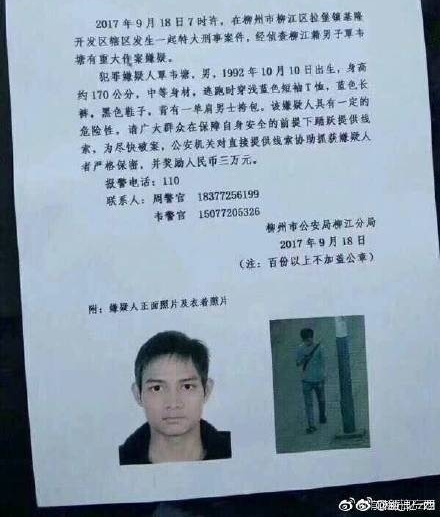 2017年9月18日7时许，在柳州市柳江区拉堡镇基隆
开发区辖区发生一起特大刑事案件，经侦查柳江籍男子覃韦
塘有重大作案嫌疑。
犯罪嫌疑人覃韦塘，男，1992年10月10日出生，身高
约170公分，中等身材，逃跑时穿浅蓝色短袖T恤，蓝色长
裤，黑色鞋子，背有一单肩男士挎包。该嫌疑人具有一定的
危险性。请广大群众在保障自身安全的前提下踊跃提供线
索，为尽快破案，公安机关对直接提供线索协助抓获嫌疑人
者严格保密，并奖励人民币三万元。
报警电话：110
联系人：周警官 18377256199
韦警官 15077205326
柳州市公安局柳江分局
2017年9月18日
（注：百份以上不加盖公章）
附：嫌疑人正面照片及衣着照片